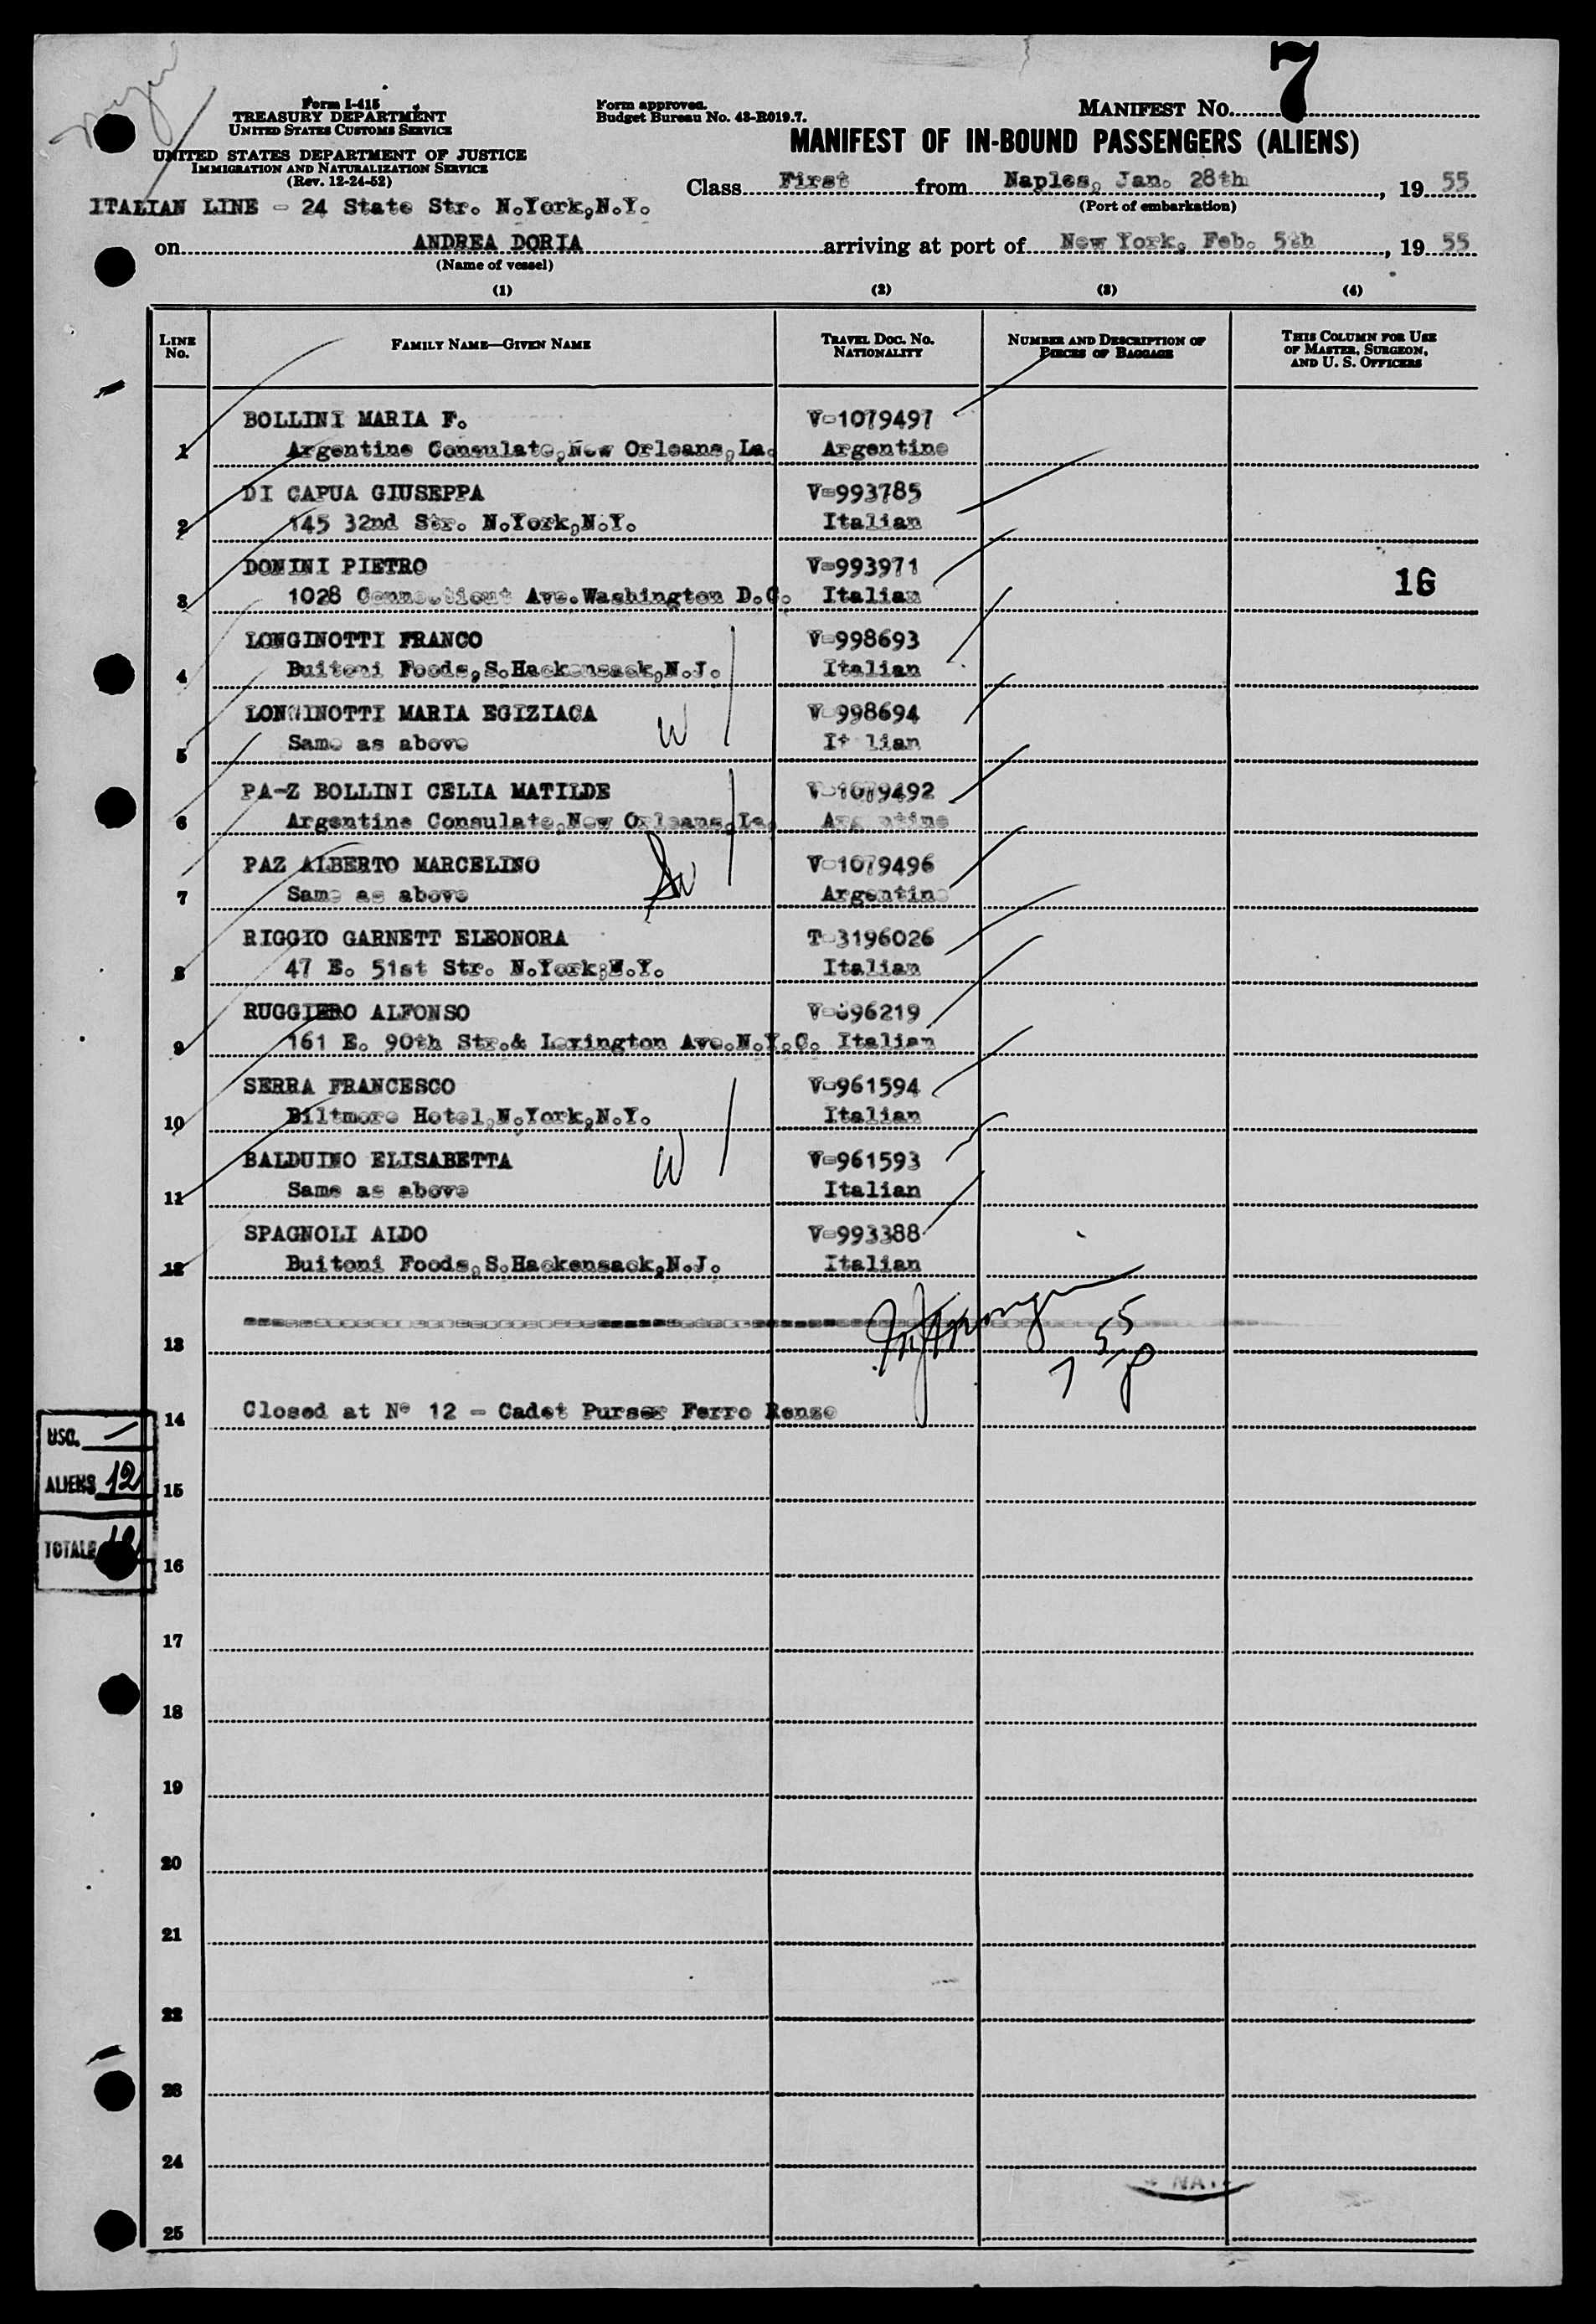 7
Form I-415
TREASURY DEPARTMENT
UNITED STATES CUSTOMS SERVICE
UNITED STATES DEPARTMENT OF JUSTICE
IMMIGRATION AND NATURALIZATION SERVICE
(Rev. 12-24-52)
Form approved.
Budget Bureau No. 43-R019.7.
MANIFEST No.
MANIFEST OF IN-BOUND PASSENGERS (ALIENS)
Class First from Naples, Jan. 28th, 19 55
(Port of embarkation)
ITALIAN LINE - 24 State Str. N.York,N.Y.
on ANDREA DORIA arriving at port of New York, Feb. 5th, 19 55
(Name of vessel)
(1) (2) (3) (4)
LINE No. FAMILY NAME—GIVEN NAME TRAVEL DOC. NO. NATIONALITY NUMBER AND DESCRIPTION OF PIECES OF BAGGAGE THIS COLUMN FOR USE OF MASTER, SURGEON, AND U. S. OFFICERS
BOLLINI MARIA F. V-1079497
1 Argentine Consulate,New Orleans,La. Argentine
DI CAPUA GIUSEPPA V-993785
2 145 32nd Str. N.York,N.Y. Italian
DONINI PIETRO V-993971 16
3 1028 Connecticut Ave.Washington D.C. Italian
LONGINOTTI FRANCO V-998693
4 Buitoni Foods,S.Hackensack,N.J. Italian
LONGINOTTI MARIA EGIZIACA V-998694
5 Same as above W Italian
PA-Z BOLLINI CELIA MATILDE V-1079492
6 Argentine Consulate,New Orleans,La. Argentine
PAZ ALBERTO MARCELINO V-1079496
7 Same as above Argentine
RIGGIO GARNETT ELEONORA T-3196026
8 47 E. 51st Str. N.York,N.Y. Italian
RUGGIERO ALFONSO 96219
9 161 E. 90th Str.& Lexington Ave.N.Y.C. Italian
SERRA FRANCESCO V-961594
10 Biltmore Hotel,N.York,N.Y. Italian
BALDUINO ELISABETTA V-961593
11 Same as above W Italian
SPAGNOLI ALDO V-993388
12 Buitoni Foods,S.Hackensack,N.J. Italian
13
14 Closed at Nº 12 - Cadet Purser Ferro Renzo
USC. —
ALIENS 12
TOTALE
15
16
17
18
19
20
21
22
23
24
25